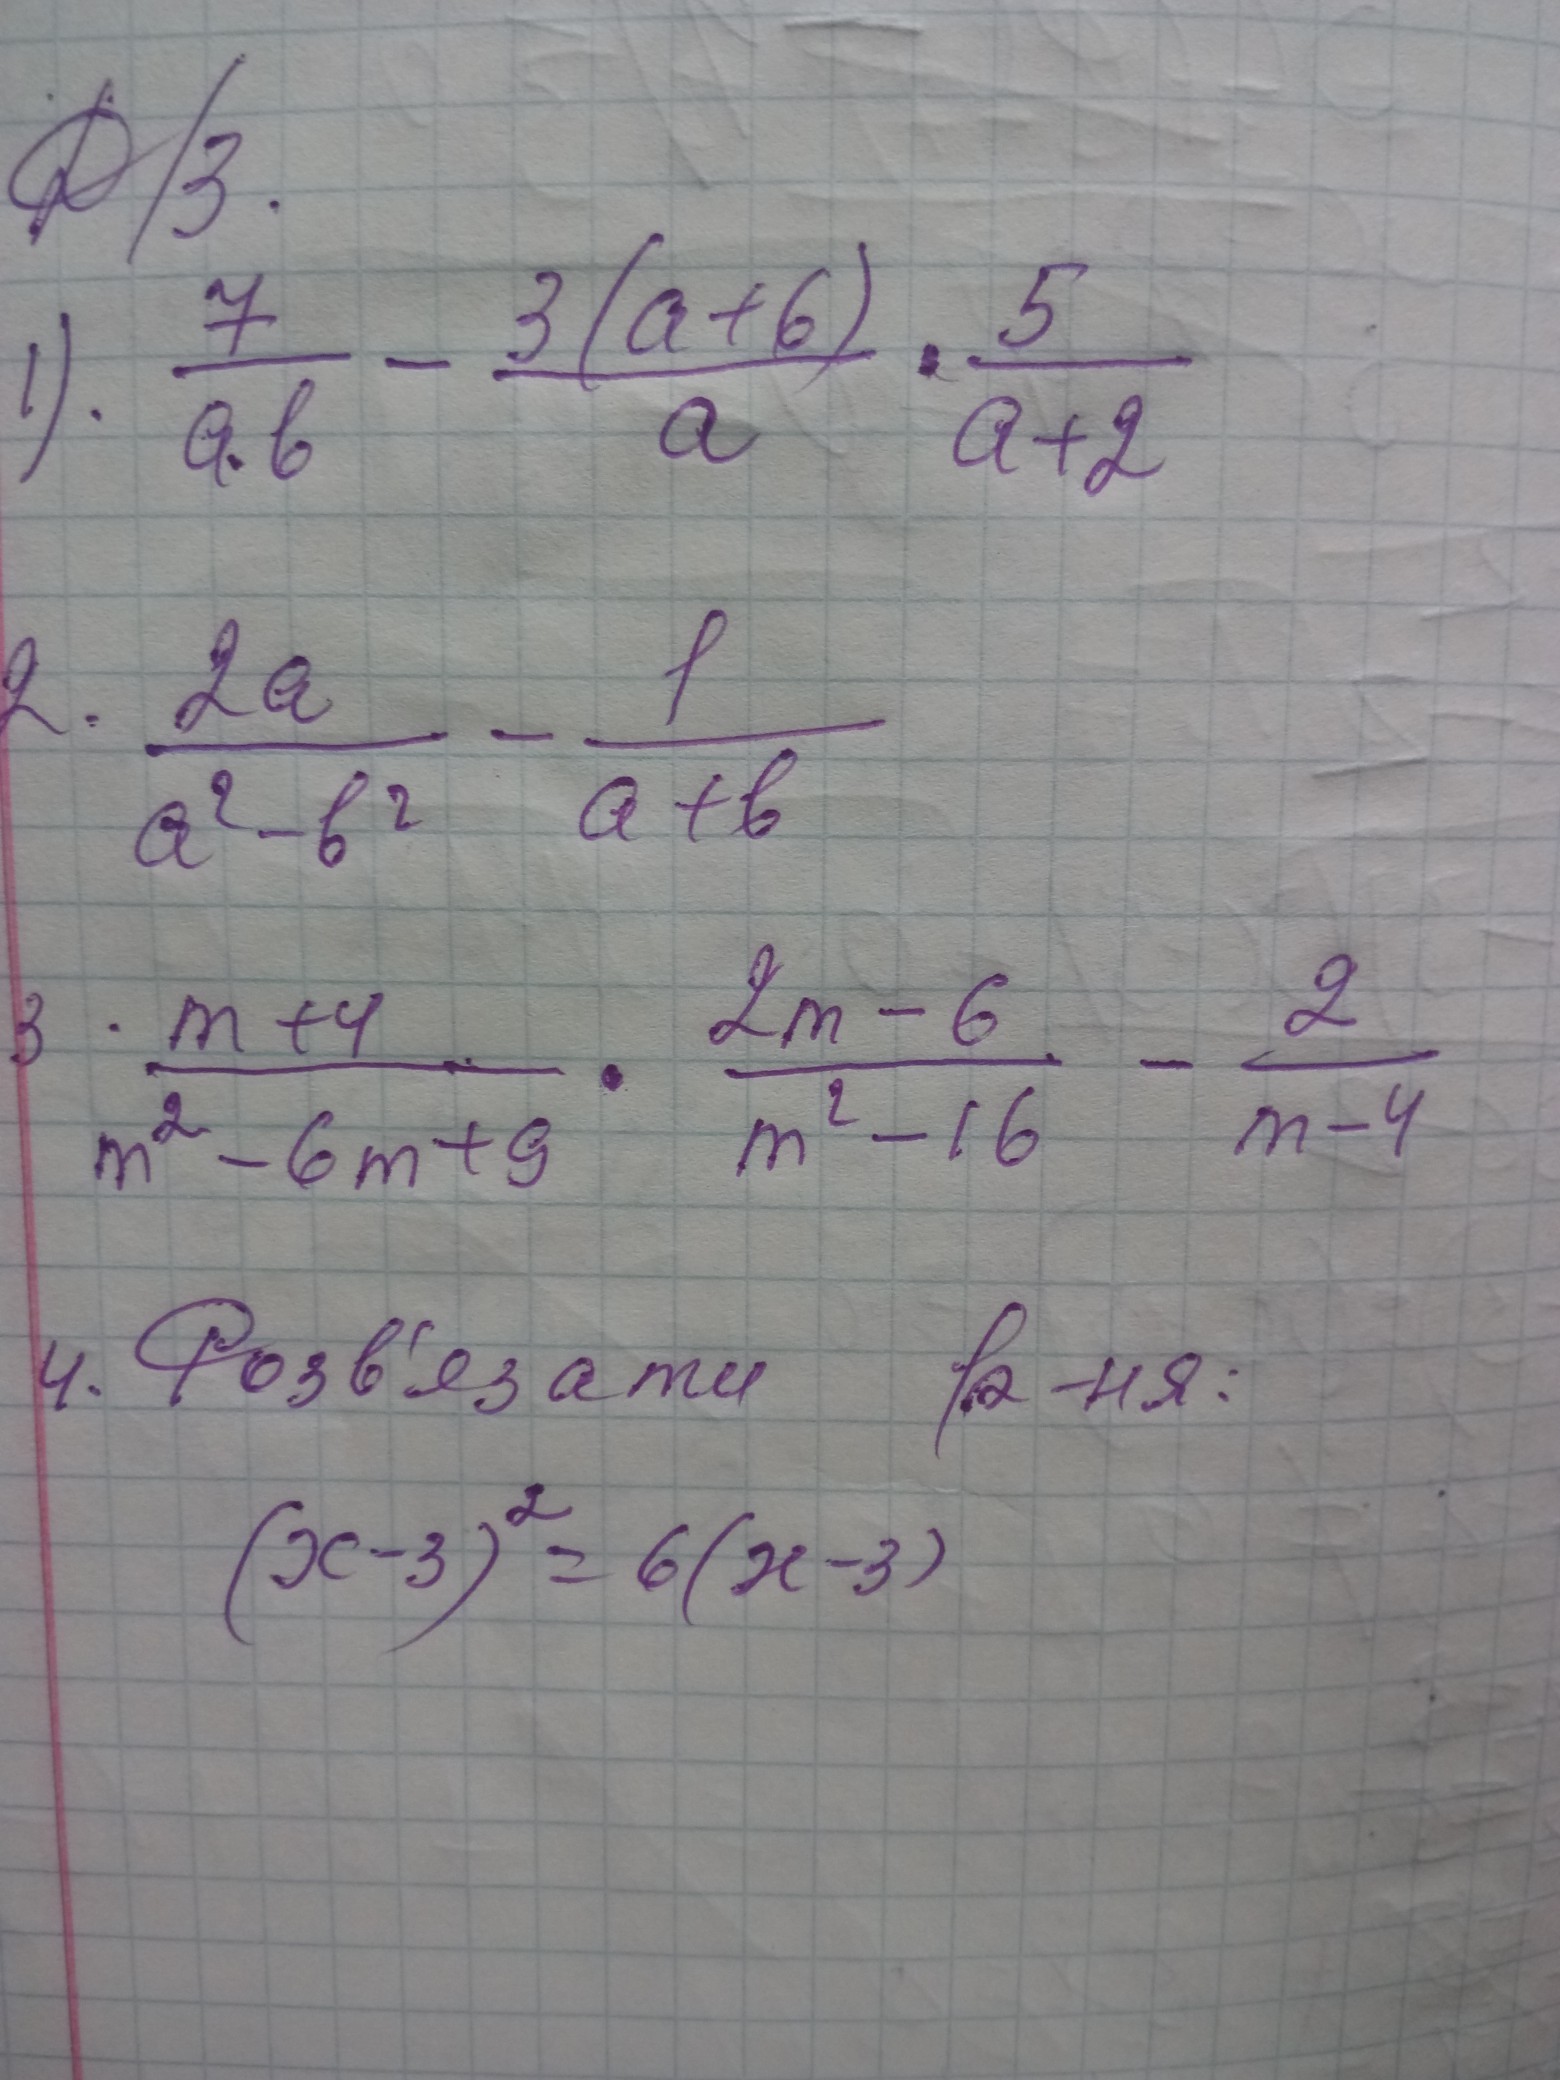 Д/З.
1). 7/(a·b) - 3(a+6)/a · 5/(a+2)
2. 2a/(a²-b²) - 1/(a+b)
3. (m+4)/(m²-6m+9) · (2m-6)/(m²-16) - 2/(m-4)
4. Розв'язати р-ня:
(x-3)² = 6(x-3)